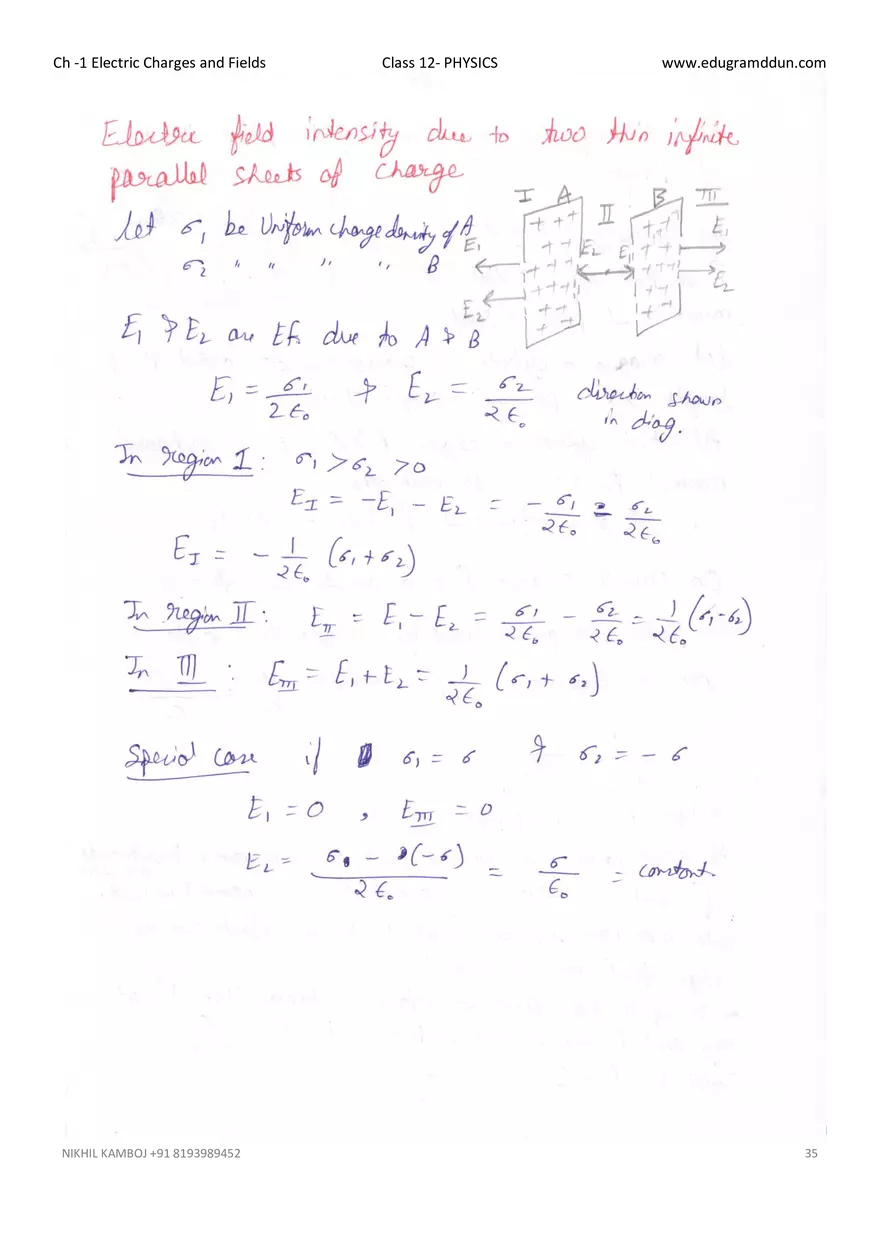 Ch -1 Electric Charges and Fields Class 12- PHYSICS www.edugramddun.com
Electric field intensity due to two thin infinite
parallel sheets of charge
I A II B III
let σ₁ be Uniform charge density of A
σ₂ " " " " B
E₁ E₂ E₁ E₁
E₂ E₂
E₁ & E₂ are Ef. due to A & B
E₁ = σ₁/2ϵ₀ & E₂ = σ₂/2ϵ₀ direction shown
in diag.
In region I : σ₁ > σ₂ > 0
E_I = -E₁ - E₂ = - σ₁/2ϵ₀ - σ₂/2ϵ₀
E_I = - 1/2ϵ₀ (σ₁ + σ₂)
In region II : E_II = E₁ - E₂ = σ₁/2ϵ₀ - σ₂/2ϵ₀ = 1/2ϵ₀ (σ₁ - σ₂)
In III : E_III = E₁ + E₂ = 1/2ϵ₀ (σ₁ + σ₂)
Special case if σ₁ = σ & σ₂ = - σ
E₁ = 0 , E_III = 0
E₂ = σ - (-σ)/2ϵ₀ = σ/ϵ₀ = constant.
NIKHIL KAMBOJ +91 8193989452 35